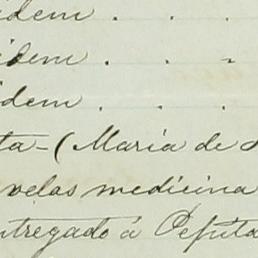 idem . . .
idem . . .
idem . . .
ta-(Maria de
velas medicina
ntregado á Pepita